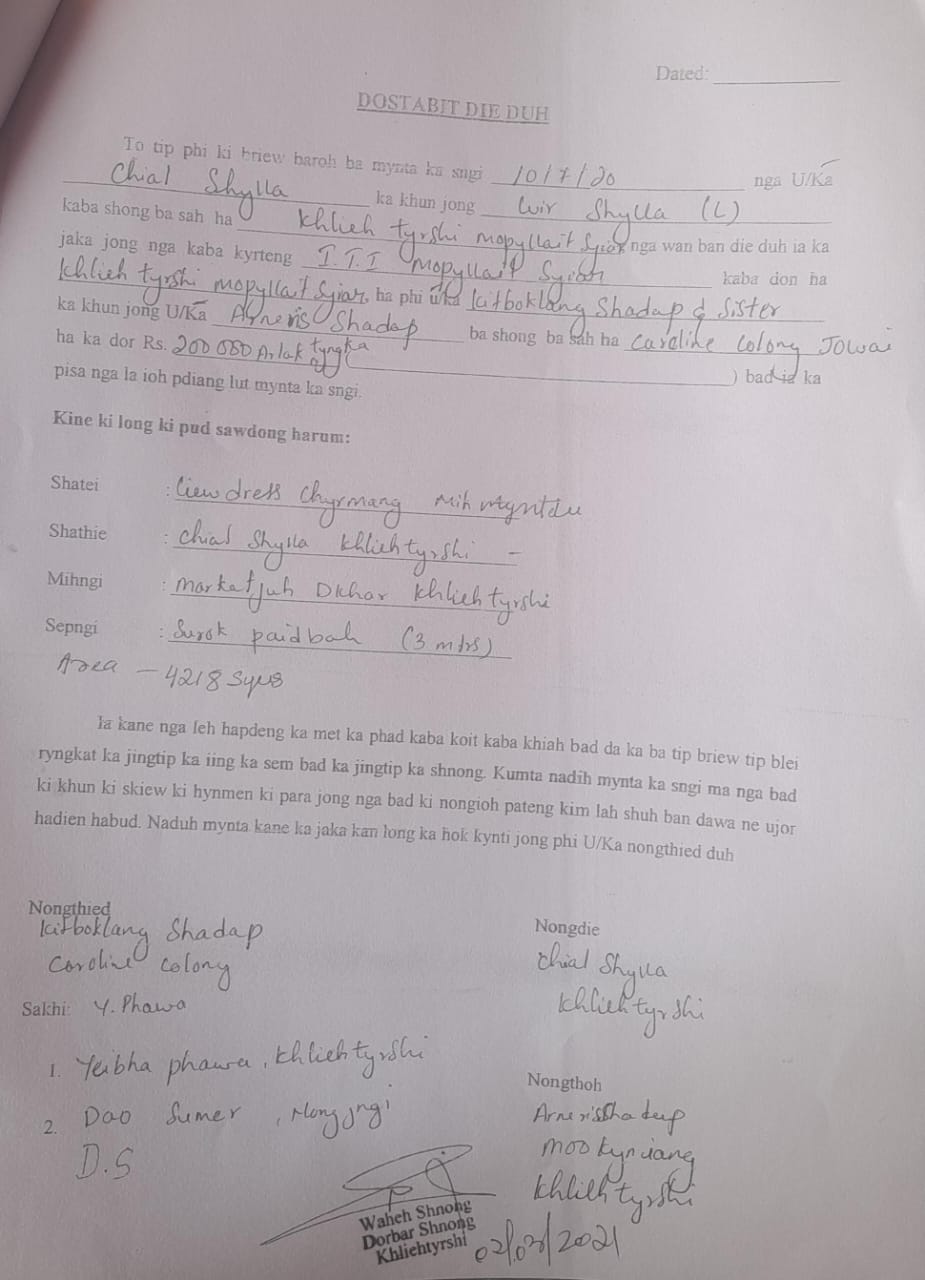 Dated: ____________
DOSTABIT DIE DUH
To tip phi ki briew baroh ba mynta ka sngi 10/7/20 nga U/Ka
Chial Shylla ka khun jong Luir Shylla (L)
kaba shong ba sah ha Khlieh tyrshi mopyllait Syiar nga wan ban die duh ia ka
jaka jong nga kaba kyrteng I.T.I Mopyllait Syiar kaba don ha
Khlieh tyrshi mopyllait Syiar, ha phi u/ka Kitboklang Shadap & Sister
ka khun jong U/Ka Arneris Shadap ba shong ba sah ha Caroline Colony Jowai
ha ka dor Rs. 200 000 Arlak tyngka (____________) bad ia ka
pisa nga la ioh pdiang lut mynta ka sngi.
Kine ki long ki pud sawdong harum:
Shatei : Liewdress Chyrmang Mihmyntdu
Shathie : Chial Shylla Khliehtyrshi -
Mihngi : Markatjuh Dkhar Khliehtyrshi
Sepngi : Surok paidbah (3 mtrs)
Area - 4218
Ia kane nga leh hapdeng ka met ka phad kaba koit kaba khiah bad da ka ba tip briew tip blei
ryngkat ka jingtip ka iing ka sem bad ka jingtip ka shnong. Kumta nadih mynta ka sngi ma nga bad
ki khun ki skiew ki hynmen ki para jong nga bad ki nongioh pateng kim lah shuh ban dawa ne ujor
hadien habud. Naduh mynta kane ka jaka kan long ka hok kynti jong phi U/Ka nongthied duh
Nongthied
Kitboklang Shadap
Caroline Colony
Nongdie
Chial Shylla
Khliehtyrshi
Sakhi: Y. Phawa
1. Yeibha phawa, Khliehtyrshi
2. Dao Sumer, Mongjngi
D.S
Nongthoh
Arneris Shadap
Mookyndiang
Khliehtyrshi
Waheh Shnong
Dorbar Shnong
Khliehtyrshi
02/03/2021